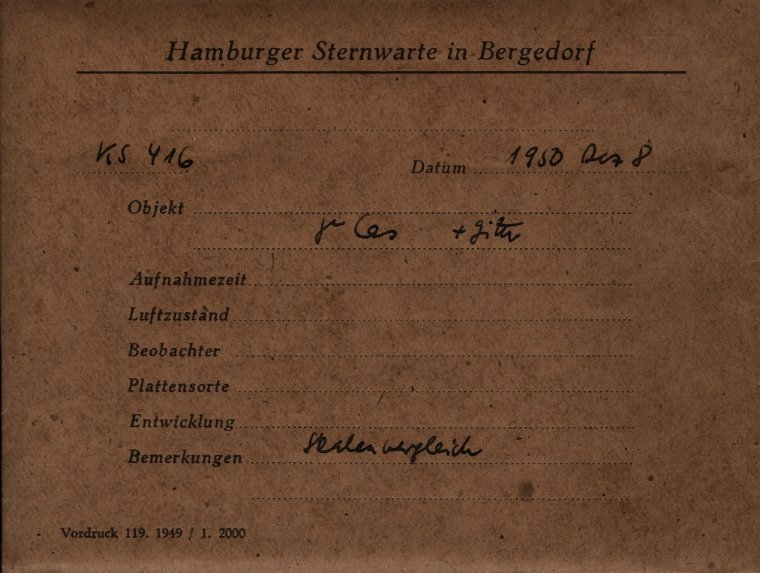 Hamburger Sternwarte in Bergedorf
KS 416 Datum 1950 Dez 8
Objekt
γ Cas + Gitter
Aufnahmezeit
Luftzustand
Beobachter
Plattensorte
Entwicklung
Bemerkungen Skalenvergleich
Vordruck 119. 1949 / 1. 2000